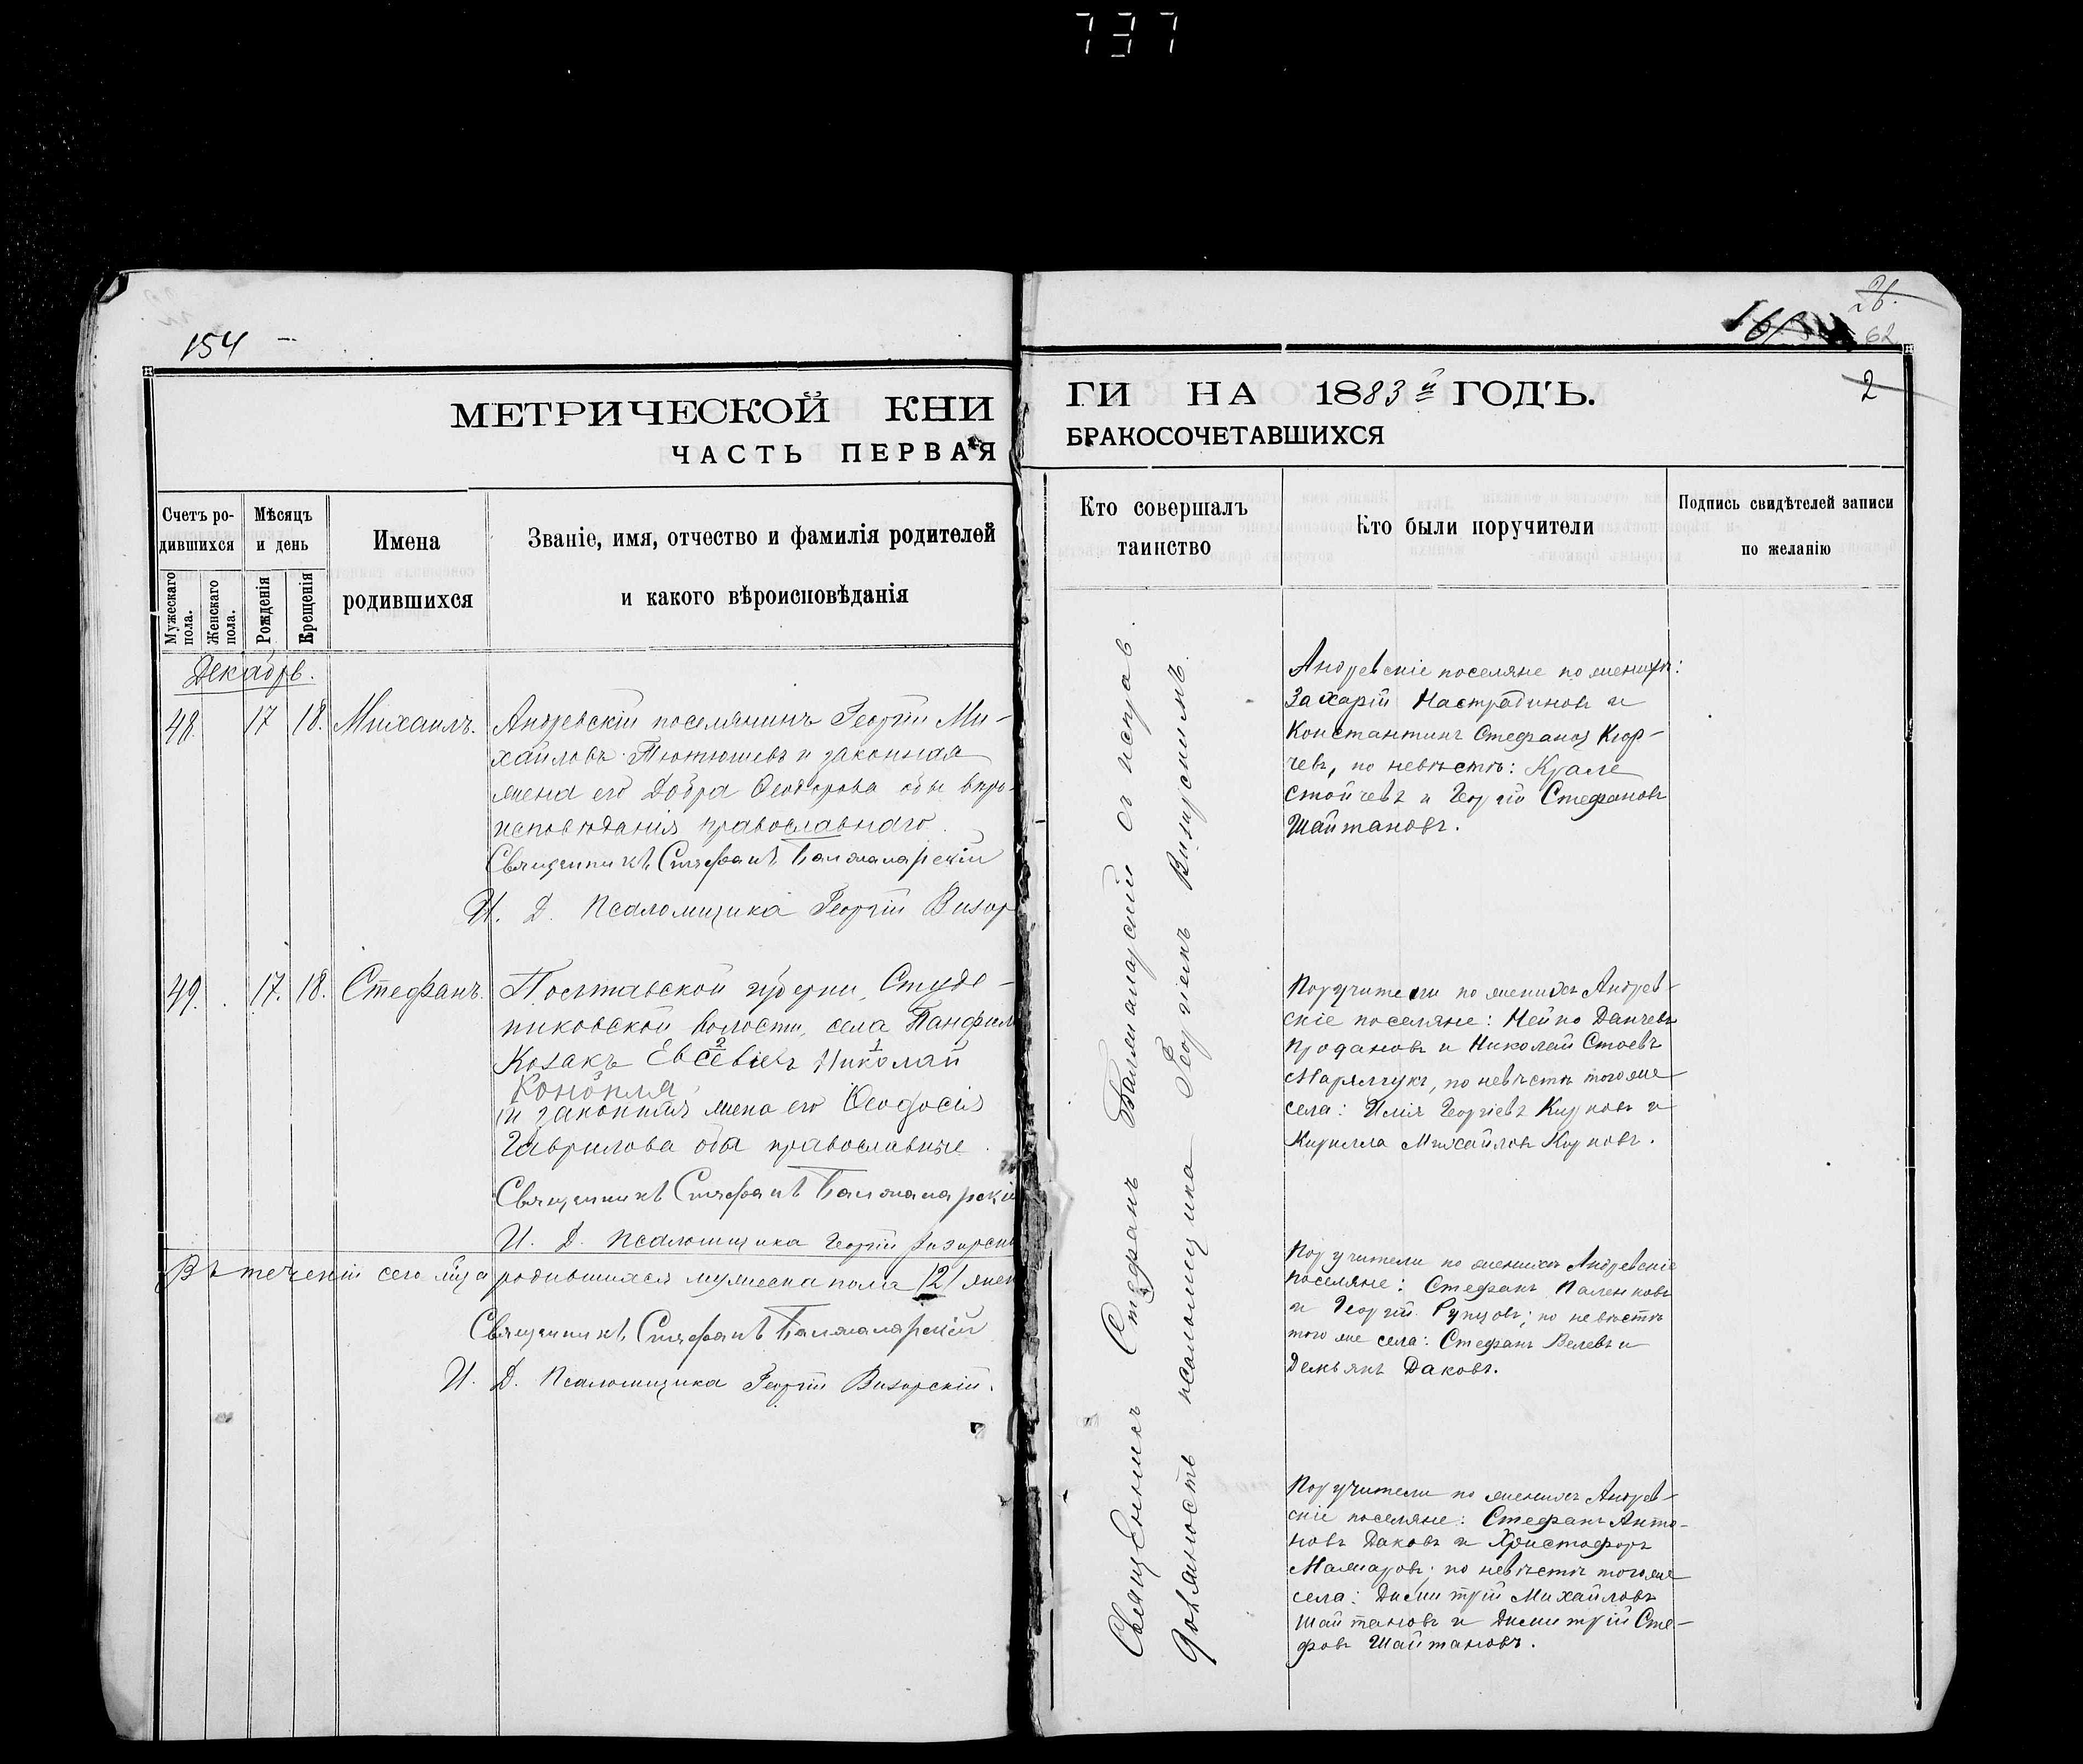 737
154 –
МЕТРИЧЕСКОЙ КНИ
ЧАСТЬ ПЕРВАЯ
Счетъ ро-
дившихся
Мѣсяцъ
и день
Имена
родившихся
Званіе, имя, отчество и фамилія родителей
и какого вѣроисповѣданія
Мужескаго пола.
Женскаго пола.
Рожденія
Крещенія
Декабрь.
48. 17 18. Михаилъ. Андревскій поселянинъ Георгій Ми-
хайловъ Тютюшевъ и законная
жена его Добра Ѳеодорова оба вѣро-
исповѣданія православнаго.
Священникъ Стефанъ Балжаларскій
И. Д. Псаломщика Георгій Визир
49. 17. 18. Стефанъ. Полтавской губерніи, Студе-
никовской волости, села Панфил
Козакъ Евсевіевъ Николай
2 1
3
Конопля
и законная жена его Ѳеодосія
Гаврилова оба православные.
Священникъ Стефанъ Балжаларскі
И. Д. Псаломщика Георгій
Въ теченіи сего м-ца родившихся мужеска пола 12 жен
Священникъ Стефанъ Балжаларскій
И. Д. Псаломщика Георгій Визирскій.
26.
62
2
ГИ НА 1883й ГОДЪ.
БРАКОСОЧЕТАВШИХСЯ
Кто совершалъ
таинство
Кто были поручители
Подпись свидѣтелей записи
по желанію
Священникъ Стефанъ Балжаларскій съ исправ.
должность псаломщика Георгіемъ Визирскимъ.
Андревскіе поселяне по женихѣ:
Захарій Настрадиновъ и
Константинъ Стефановъ Кюр-
чевъ, по невѣстѣ: Крале
Стойчевъ и Георгій Стефановъ
Шайтановъ.
Поручители по женихѣ Андрев-
скіе поселяне: Нейко Данчевъ
Продановъ и Николай Стоевъ
по невѣстѣ того же
села: Илія Георгіевъ Курновъ и
Кирилла Михайловъ Курновъ.
Поручители по женихѣ Андревскіе
поселяне: Стефанъ Паленковъ
и Георгій Рупцовъ; по невѣстѣ
того же села: Стефанъ Велевъ и
Демьянъ Даковъ.
Поручители по женихѣ Андрев-
скіе поселяне: Стефанъ Анто-
новъ Даковъ и Христофоръ
Мамаровъ; по невѣстѣ того же
села: Димитрій Михайловъ
Шайтановъ и Димитрій Сте-
фовъ Шайтановъ.